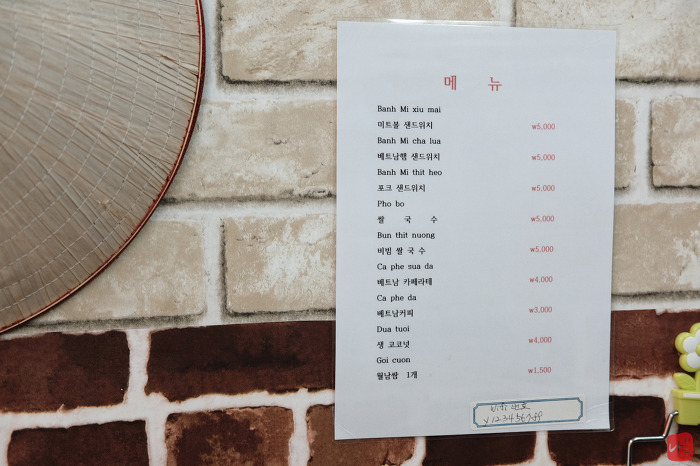 메 뉴
Banh Mi xiu mai
미트볼 샌드위치 ₩5,000
Banh Mi cha lua
베트남햄 샌드위치 ₩5,000
Banh Mi thit heo
포크 샌드위치 ₩5,000
Pho bo
쌀 국 수 ₩5,000
Bun thit nuong
비빔 쌀 국 수 ₩5,000
Ca phe sua da
베트남 카페라테 ₩4,000
Ca phe da
베트남커피 ₩3,000
Dua tuoi
생 코코넛 ₩4,000
Goi cuon
월남쌈 1개 ₩1,500
Wifi 번호